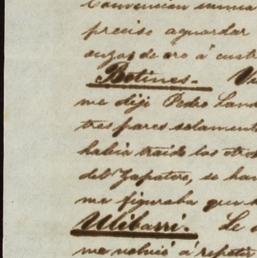 Convencion
preciso aguardar
onzas de oro á
Botines. - 
me dijo Pedro
tres pares solament
habia traido los otros
del Zapatero, se
me figuraba que
Ulibarri. - Le
me volvió á repetir